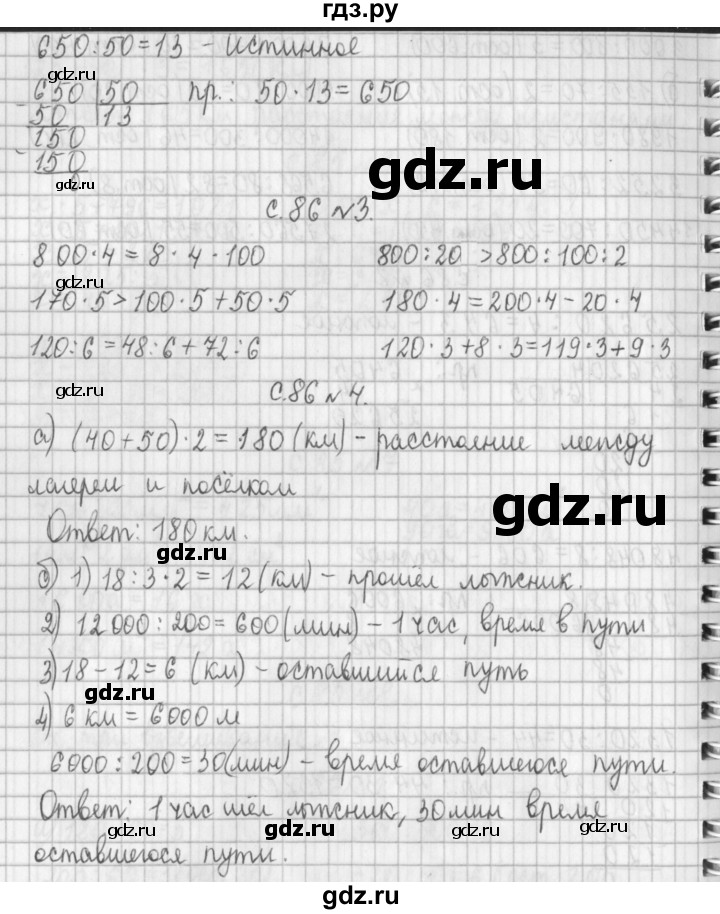 гдз.ру
650:50=13 - Истинное
gdz.ru
650 50 пр.: 50·13=650
- 50 13
150
- 150
gdz.ru 0
gdz.ru
с.86 №3.
800·4=8·4·100 800:20 >800:100:2
gdz.ru
170·5>100·5+50·5 180·4=200·4-20·4
120:6=48:6+72:6 120·3+8·3=119·3+9·3
gdz.ru
с.86 №4.
а) (40+50)·2=180(км)-расстояние между
лагерем и посёлком
gdz.ru
Ответ: 180 км.
gdz.ru
б) 1) 18:3·2=12(км)-прошёл лыжник.
2) 12000:200=600(мин)-1 час, время в пути
3) 18-12=6 (км)-оставшийся путь
gdz.ru
4) 6 км = 6000 м
6000:200=30(мин)-время оставшегося пути.
Ответ: 1 час шёл лыжник, 30 мин время
gdz.ru gdz.ru gdz.ru gdz.ru
оставшегося пути.
gdz.ru